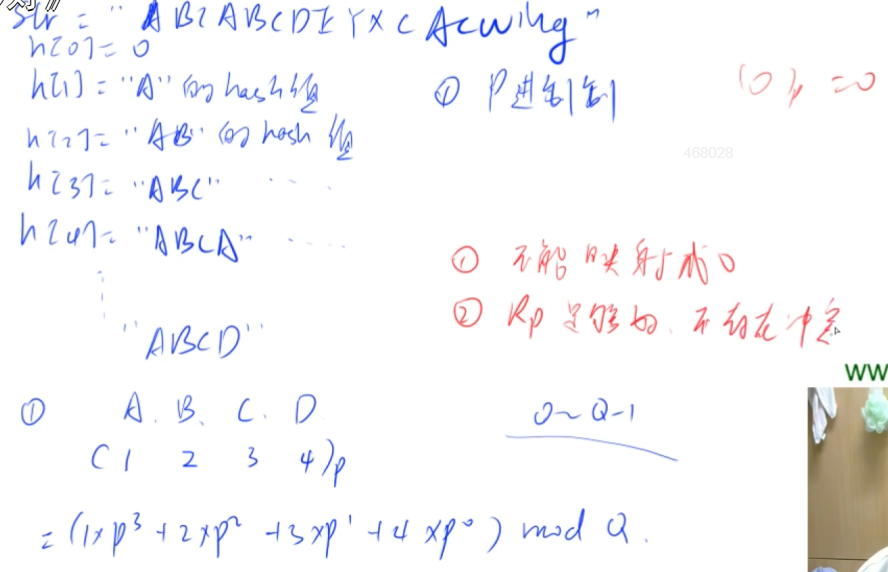 str = "ABCABCDEYXCAcwing"
h[0] = 0
h[1] = "A" 的 hash 值
h[2] = "AB" 的 hash 值
h[3] = "ABC" ....
h[4] = "ABCA" ....
"ABCD"
① P进制
(0)p = 0
468028
① 不能映射成0
② Rp足够好、不存在冲突
ww
① A. B. C. D
(1 2 3 4)p
0~Q-1
= (1×p³ + 2×p² + 3×p¹ + 4×p⁰) mod Q.